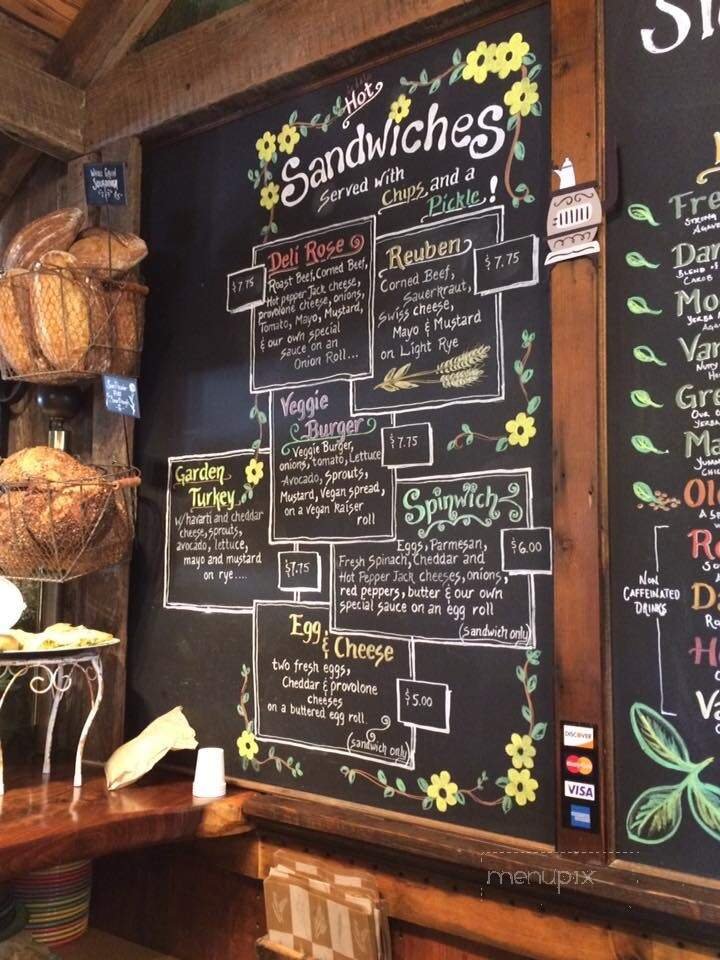 Hot
Sandwiches
Served with
Chips and a
Pickle!
Deli Rose
$7.75
Roast Beef, Corned Beef,
Hot pepper Jack cheese,
provolone cheese, onions,
Tomato, Mayo, Mustard,
& our own special
sauce on an
Onion Roll...
Reuben
$7.75
Corned Beef,
Sauerkraut,
Swiss cheese,
Mayo & Mustard
on Light Rye
Veggie
Burger
$7.75
Veggie Burger,
onions, tomato, Lettuce
Avocado, Sprouts,
Mustard, Vegan spread,
on a Vegan Kaiser
roll
Garden
Turkey...
w/havarti and cheddar
cheese, sprouts,
avocado, lettuce,
mayo and mustard
on rye....
$7.75
Spinwich
$6.00
Eggs, Parmesan,
Fresh Spinach, Cheddar and
Hot Pepper Jack cheeses, onions,
red peppers, butter & our own
special sauce on an egg roll
(sandwich only)
Egg
& Cheese
$5.00
two fresh eggs,
Cheddar & provolone
cheeses
on a buttered egg roll.
(sandwich only)
NON
CAFFEINATED
DRINKS
DISCOVER
MasterCard
VISA
menupix